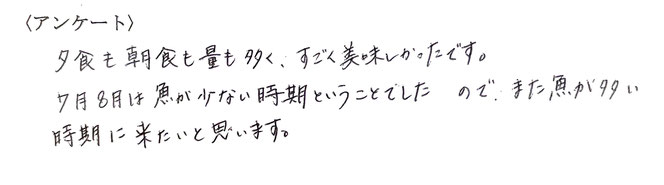 〈アンケート〉
夕食も朝食も量も多く、すごく美味しかったです。
7月8月は魚が少ない時期ということでした ので、また魚が多い
時期に来たいと思います。